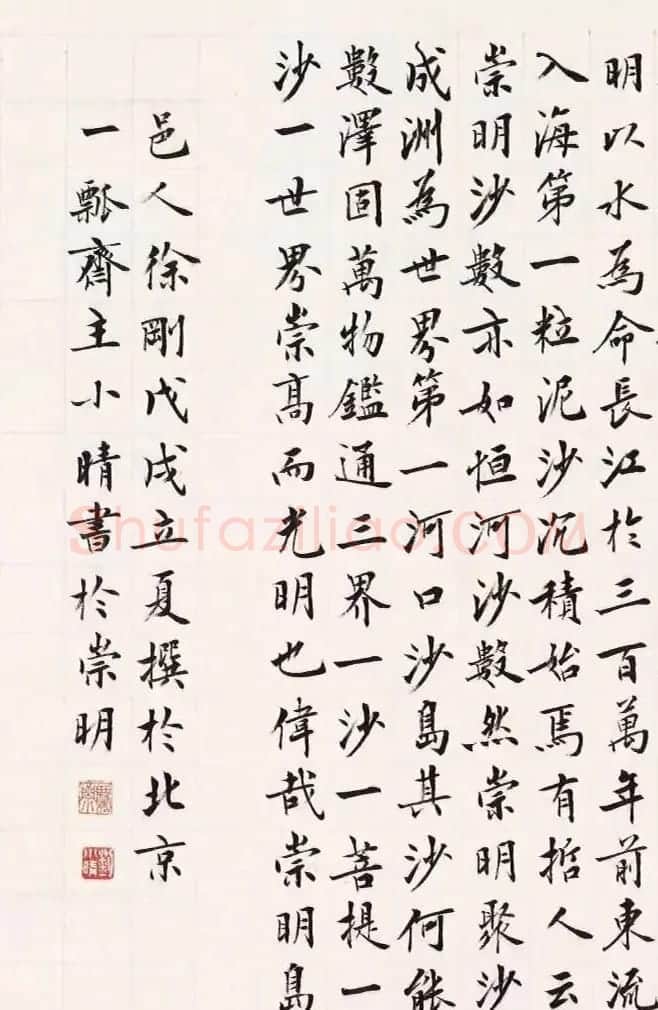 明以水為命長江於三百萬年前東流
入海第一粒泥沙沉積始焉有哲人云
崇明沙數亦如恒河沙數然崇明聚沙
成洲為世界第一河口沙島其沙何能
數澤固萬物鑑通二界一沙一菩提一
沙一世界崇高而光明也偉哉崇明島
邑人徐剛戊戌立夏撰於北京
一瓢齋主小晴書於崇明
Shufaziliao.COM